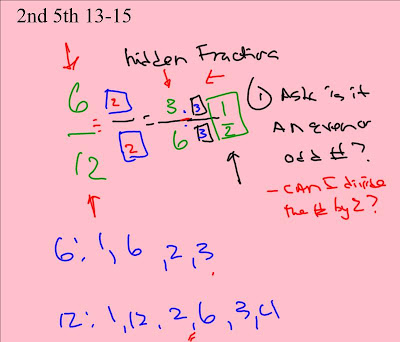 2nd 5th 13-15
hidden Fraction
6 = 2 = 3 ÷ 3 1
12 2 6 ÷ 3 2
① Ask is it
An even or
odd #?
- CAN I divide
the # by 2?
6: 1, 6, 2, 3
12: 1, 12, 2, 6, 3, 4